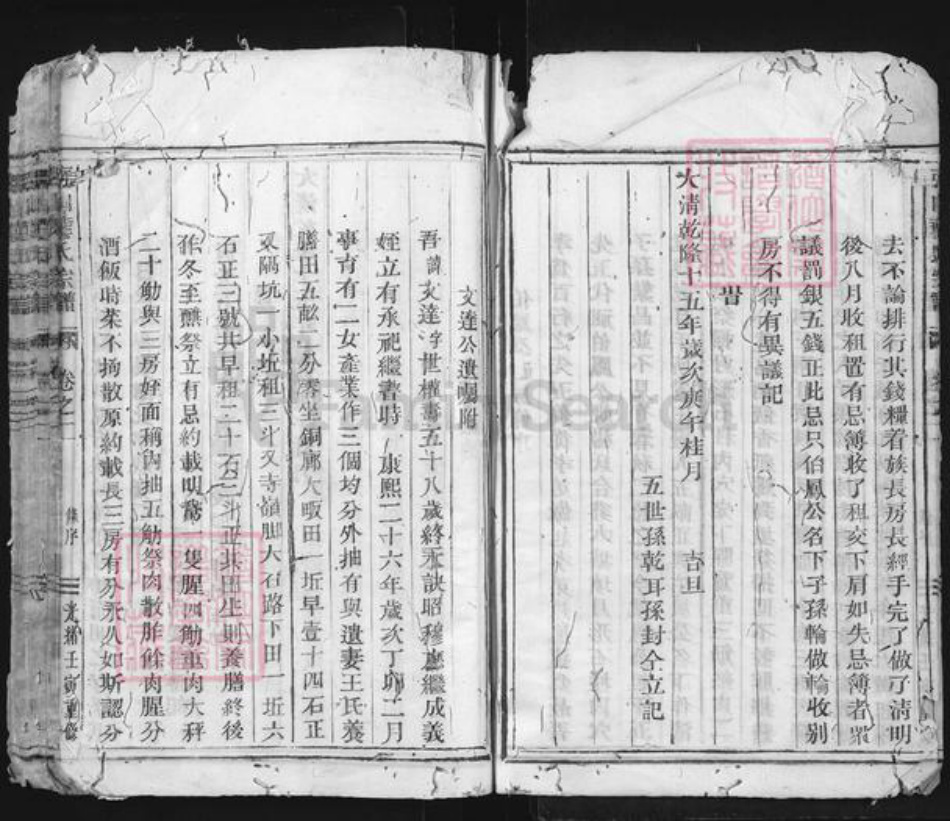 去不論排行其錢糧着族長房長經手完了做了清明
後八月收租置有忌簿收了租交下肩如失忌簿者眾
議罰銀五錢正此忌只伯鳳公名下子孫輪做輪收别
房不得有異議記
旹
大清乾隆十五年歲次庚午桂月 吉旦
五世孫乾耳孫封仝立記
文達公遺囑附
吾諱文達字世權壽五十八歲終永訣昭穆應繼成義
姪立有承祀繼書時 康熙二十六年歲次丁卯二月
事育有一女產業作三個均分外抽有與遺妻王氏養
膳田五畝二分零坐銅廊大畈田一坵早壹十四石正
又隔坑一小坵租三斗又寺嶺脚大石路下田一坵六
石正三號共早租二十石三斗正其田生則養膳終後
孫冬至醮祭立有忌約載明鵞一隻腥四觔重肉大秤
二十觔與三房好面稱內抽五觔祭肉散胙餘肉腥分
酒飯時菜不拘散原約載長三房有分永八如斯認分
卷之
FamilySearch